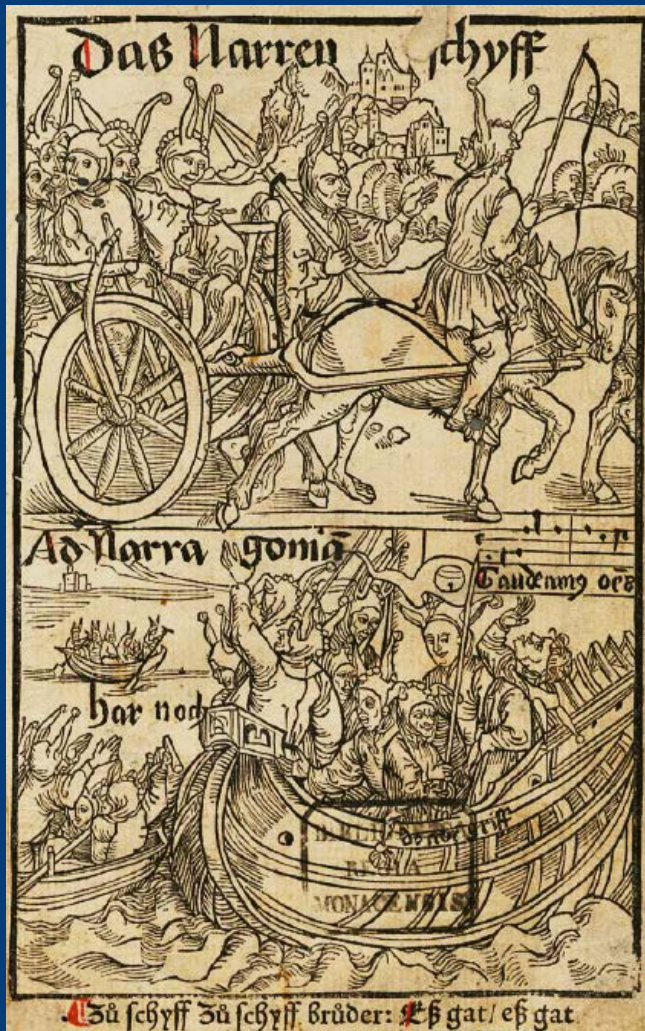 Das Narren schyff
Ad Narra goniā
Gaudeamꝰ oēs
har noch
BIBLIOTHECA
REGIA
MONACENSIS
Zů schyff Zů schyff brůder: Eß gat/ eß gat